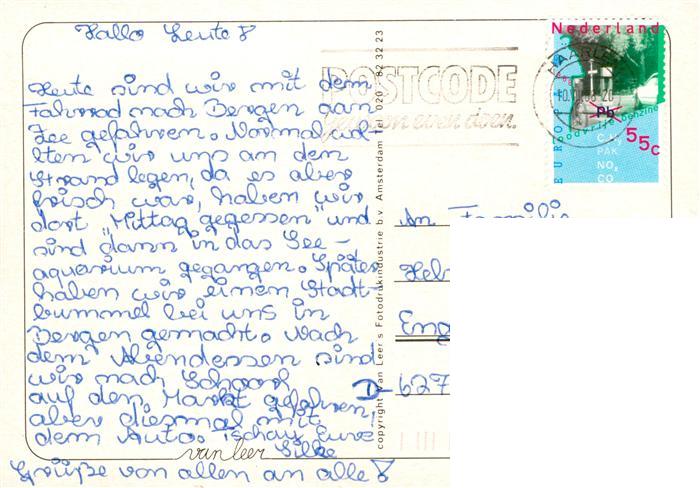 Hallo Leute!
Heute sind wir mit dem
Fahrrad nach Bergen aan
Zee gefahren. Normal woll
ten wir uns an dem
Strand legen, da es aber
frisch war, haben wir
dort "Mittag gegessen" und
sind dann in das See-
aquarium gegangen. Später
haben wir einen Stadt-
bummel bei uns in
Bergen gemacht. Nach
dem Abendessen sind
wir nach Schoorl
auf den Markt gefahren,
aber diesmal mit
dem Auto. Tschau Eure
Silke
Grüße von allen an alle!
van leer
copyright Van Leer's Fotodrukindustrie b.v. Amsterdam Tel. 020 - 82 32 23
POSTCODE
gewoon even doen.
HAARLEM
Nederland
EUROPA
Pb
loodvrije benzine
55c
CxHy
PAK
NOx
CO
An Familie
Hel
Eng
D-627